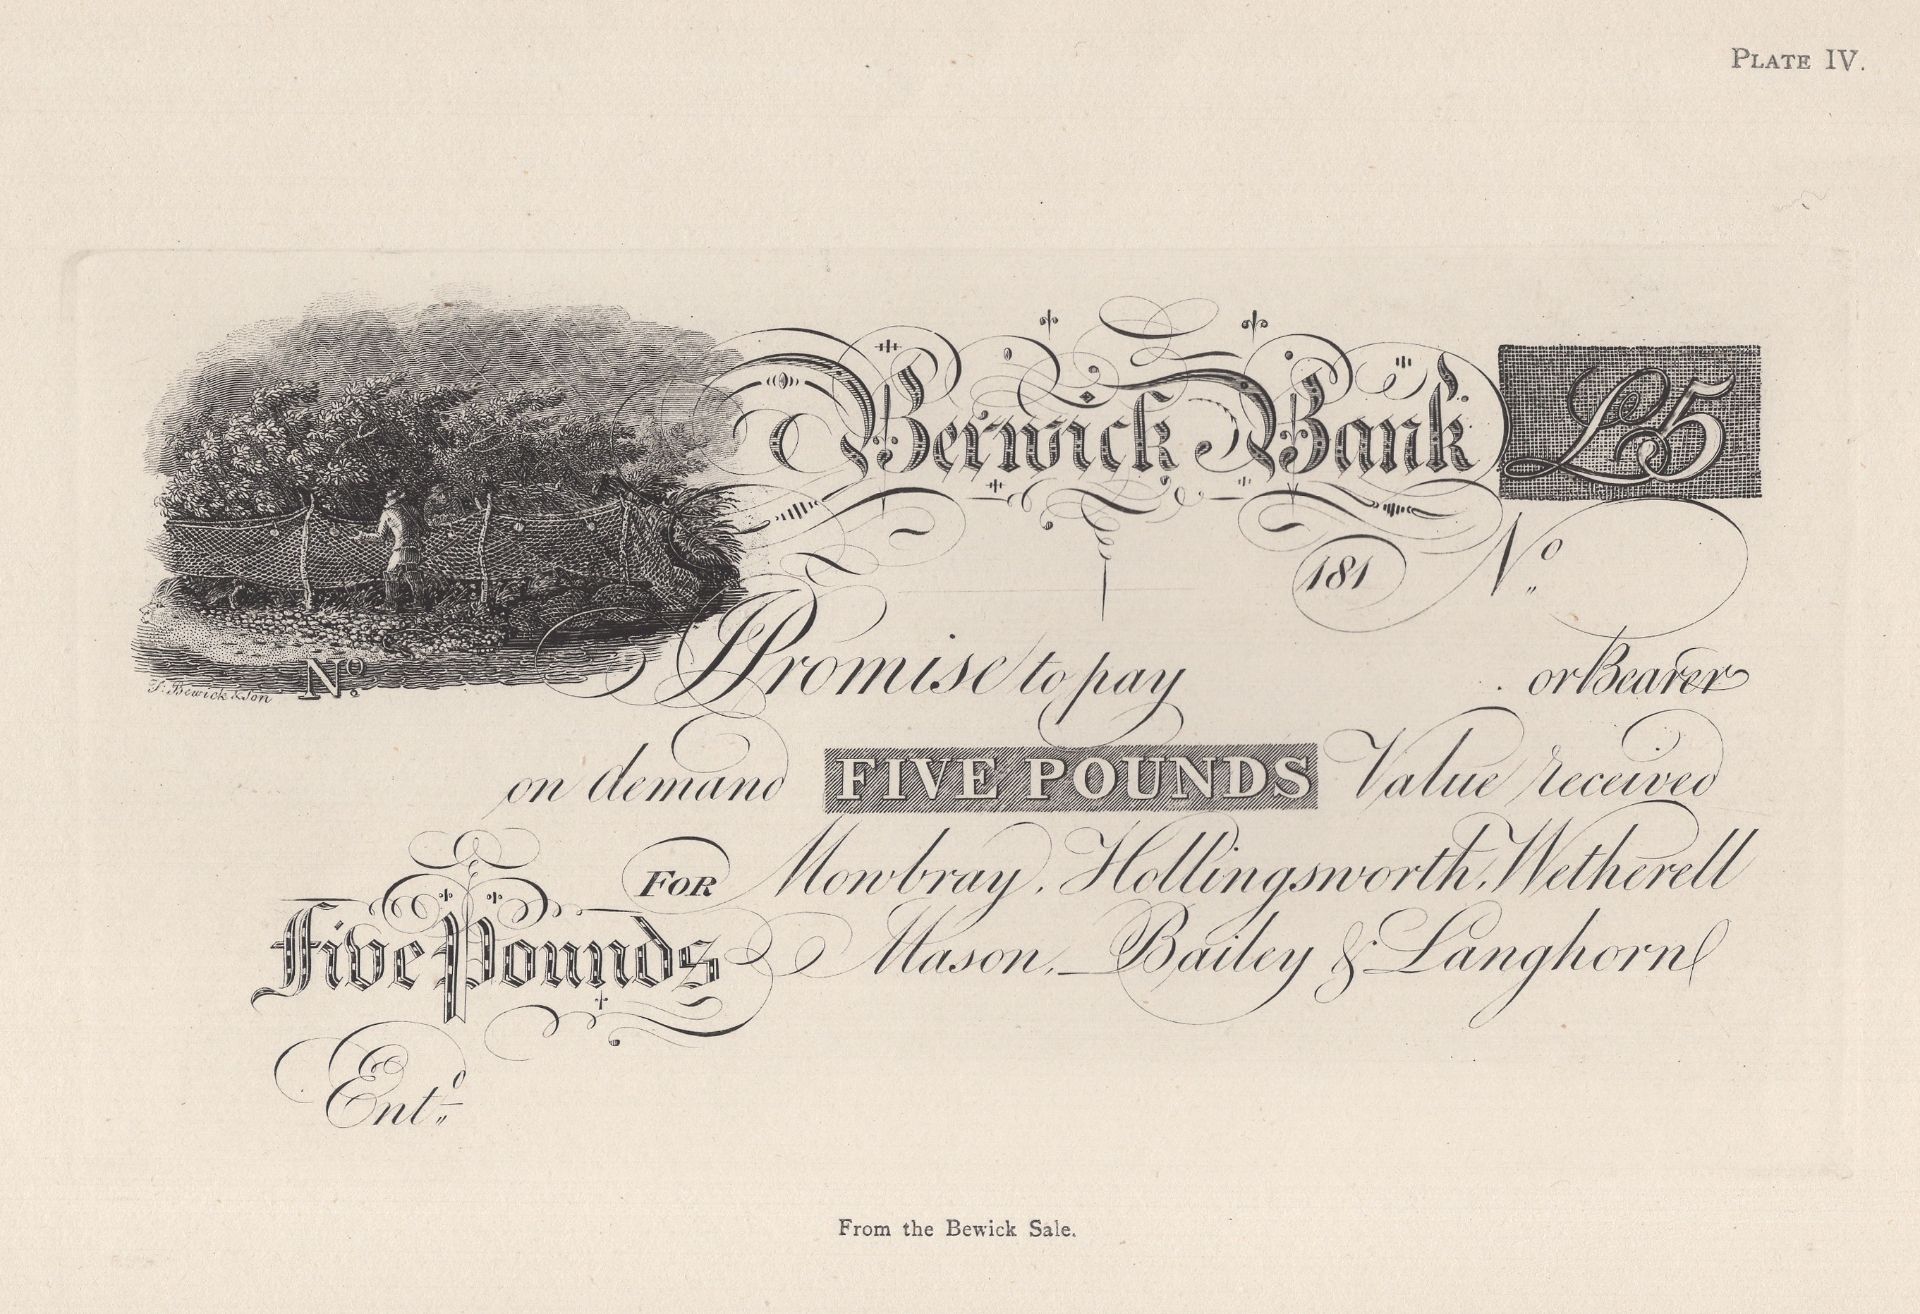 PLATE IV.
Berwick Bank £5
181 No
No. I Promise to pay or Bearer
T. Bewick & Son
on demand FIVE POUNDS Value received
FOR Mowbray, Hollingsworth, Wetherell
Five Pounds Mason, Bailey & Langhorn
Ent.o
From the Bewick Sale.